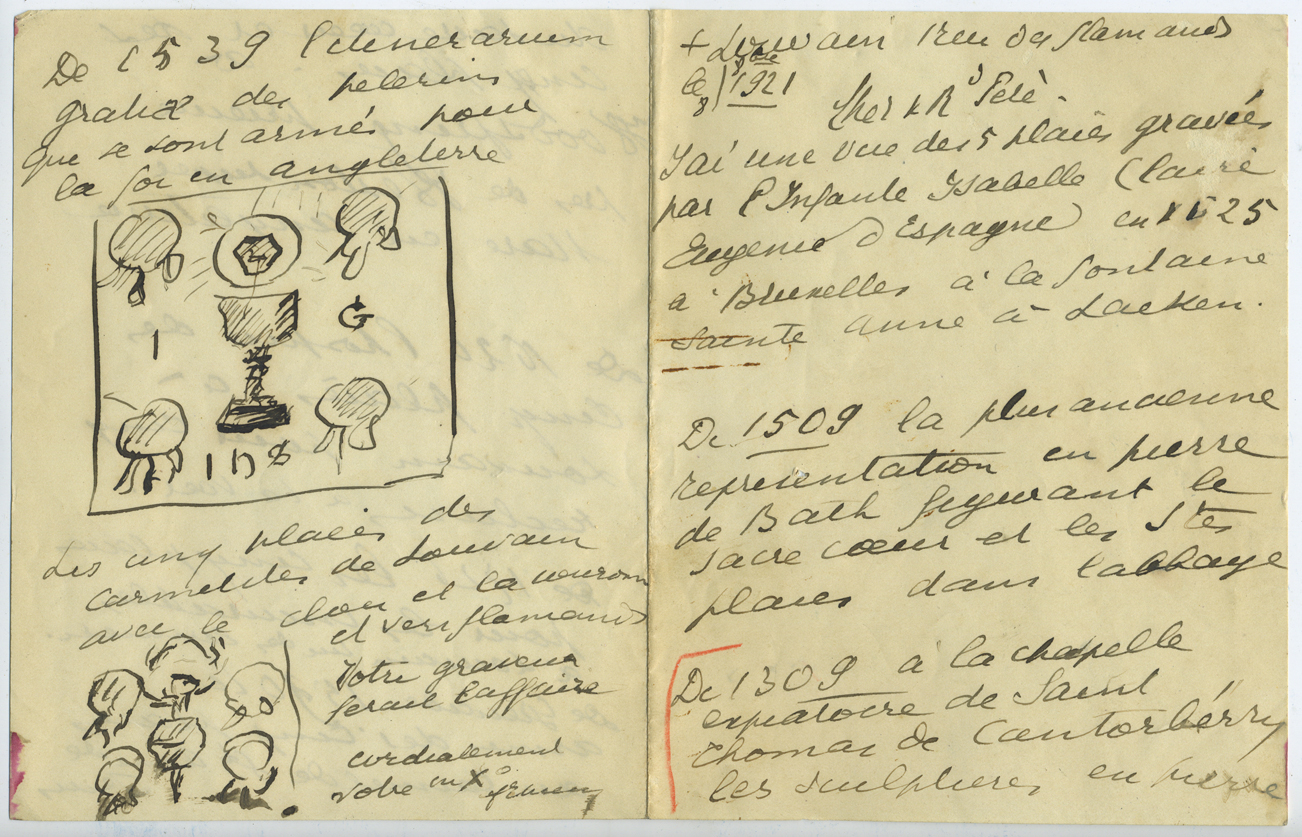 + Louvain 1 rue des flamands
le 1921
Cher R Père.
J'ai une vue des 5 plaies gravées
par l'Infante Isabelle Claire
Eugenie d'Espagne en 1625
a Bruxelles à la fontaine
Sainte Anne à Laeken.
De 1509 la plus ancienne
representation en pierre
de Bath figurant le
sacre cœur et les Stes
plaies dans l'abbaye
De 1309 à la chapelle
expiatoire de Saint
Thomas de Cantorbérry
les sculptures en pierre
De 1539 Itinerarium
gratiæ des pelerins
que se sont armés pour
la foi en angleterre
I G
I h s
Les cinq plaies des
carmelites de Louvain
avec le clou et la couronne
et vers flamands
Votre graveur
ferait l'affaire
cordialement
votre in X°